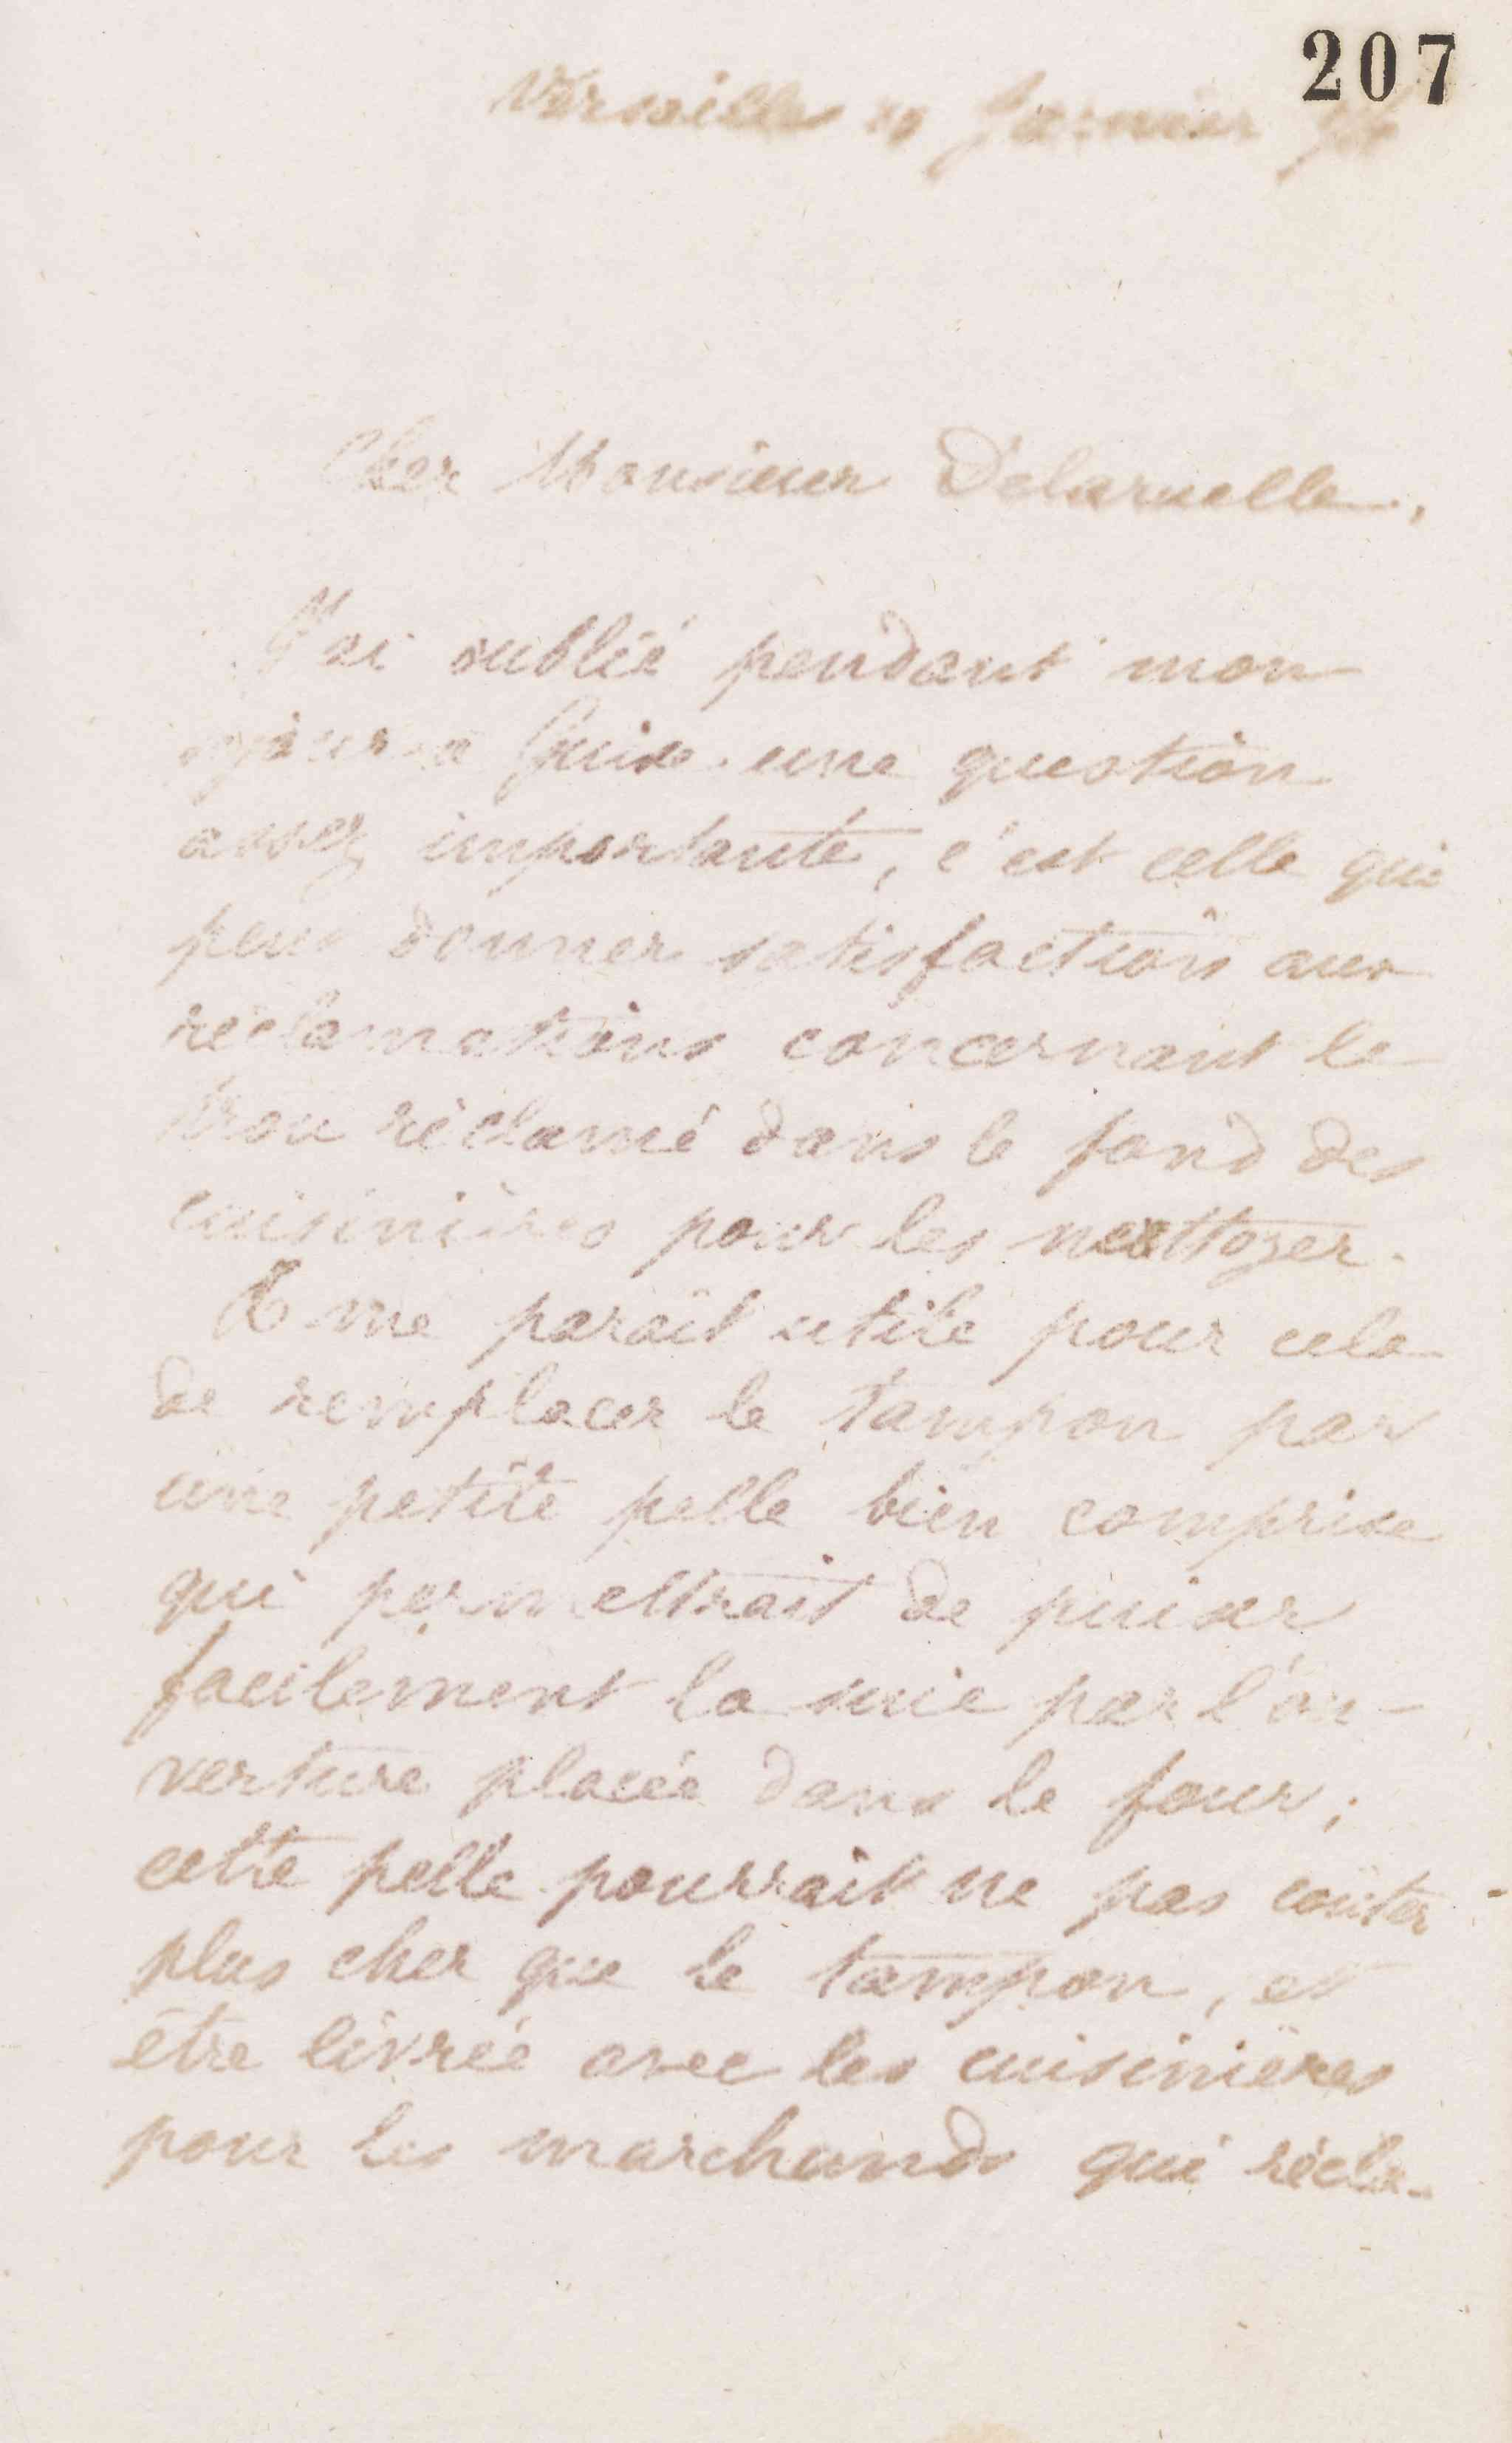 207
Versailles Janvier
Cher Monsieur Delaruelle,
J'ai oublié pendant mon
séjour à Guise une question
assez importante, c'est celle qui
peut donner satisfaction aux
réclamations concernant le
trou réclamé dans le fond des
cuisinières pour les nettoyer.
Il me paraît utile pour cela
de remplacer le tampon par
une petite pelle bien comprise
qui permettrait de puiser
facilement la suie par l'ou-
verture placée dans le four;
cette pelle pourrait ne pas coûter
plus cher que le tampon, et
être livrée avec les cuisinières
pour les marchands qui récla-